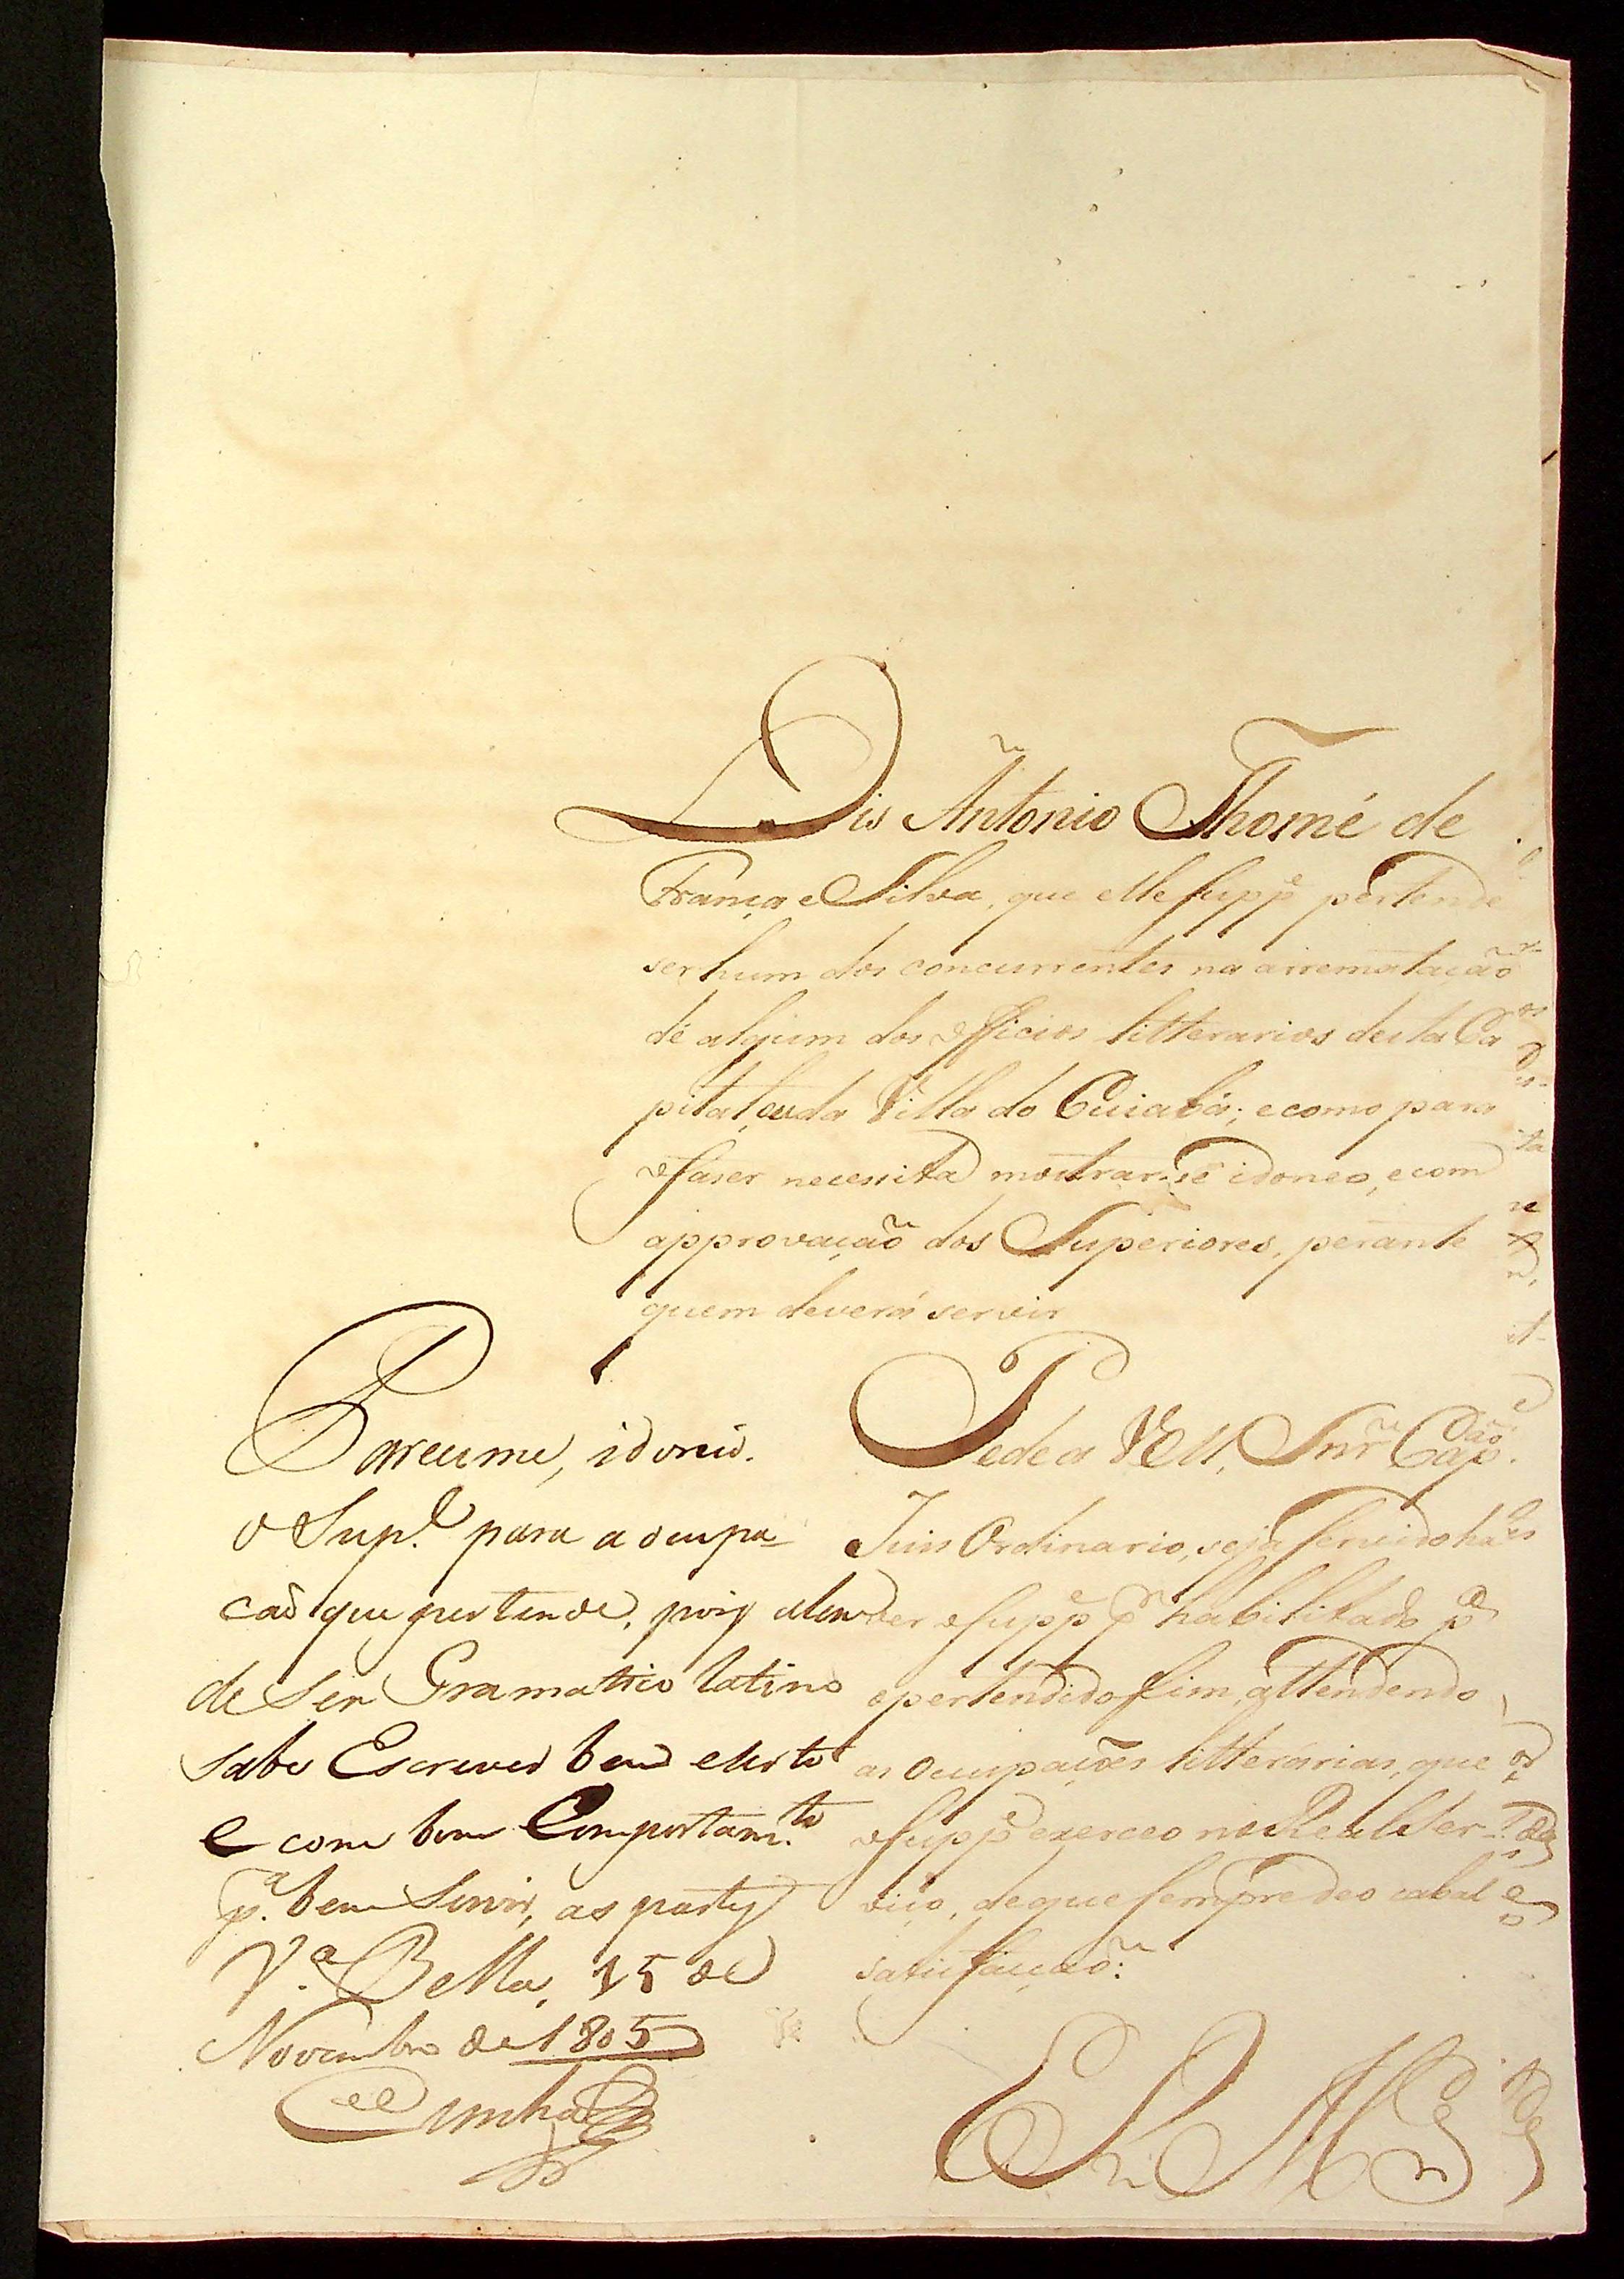 Dis Antonio Thomé de
França e Silva, que elle supp.e pertende
ser hum dos concurrentes na arrematação
de algum dos officios litterarios desta Ca
pital, ou da Villa do Cuiabá; e como para
o faser necessita mostrar-se idoneo, e com
approvação dos Superiores, perante
quem deverá servir
Pede a VM, Snr Cap.ão
Juis Ordinario, seja servido ha
ver o supp.e p.r habilitado p.a
o pertendido fim, attendendo
as ocupações litterárias, que
o supp.e exerceo no Real Ser-
viço, de que sempre deo cabal
satisfacção:
E R M
Pareceme, idoneo.
o Sup.e para a ocupa-
cão que pertende, pois alem
de Ser Gramatico Latino
Sabe Escrever bem e certo
e com bom Comportam.to
p.a bem Servir, as partes
V.a Bella, 15 de
Novembro de 1805
Cunha